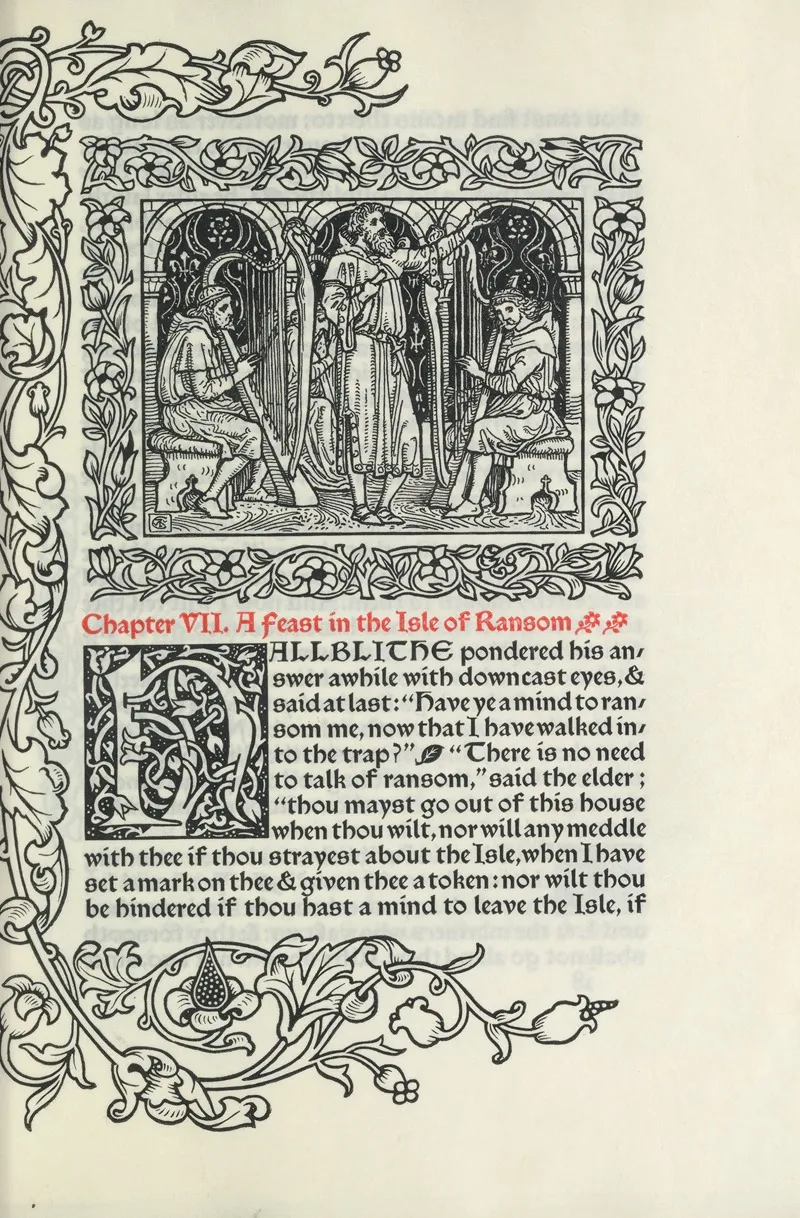 Chapter VII. A feast in the Isle of Ransom
HALLBLITHE pondered his an/
swer awhile with downcast eyes, &
said at last: “Have ye a mind to ran/
som me, now that I have walked in/
to the trap?” “There is no need
to talk of ransom,” said the elder;
“thou mayst go out of this house
when thou wilt, nor will any meddle
with thee if thou strayest about the Isle, when I have
set a mark on thee & given thee a token: nor wilt thou
be hindered if thou hast a mind to leave the Isle, if